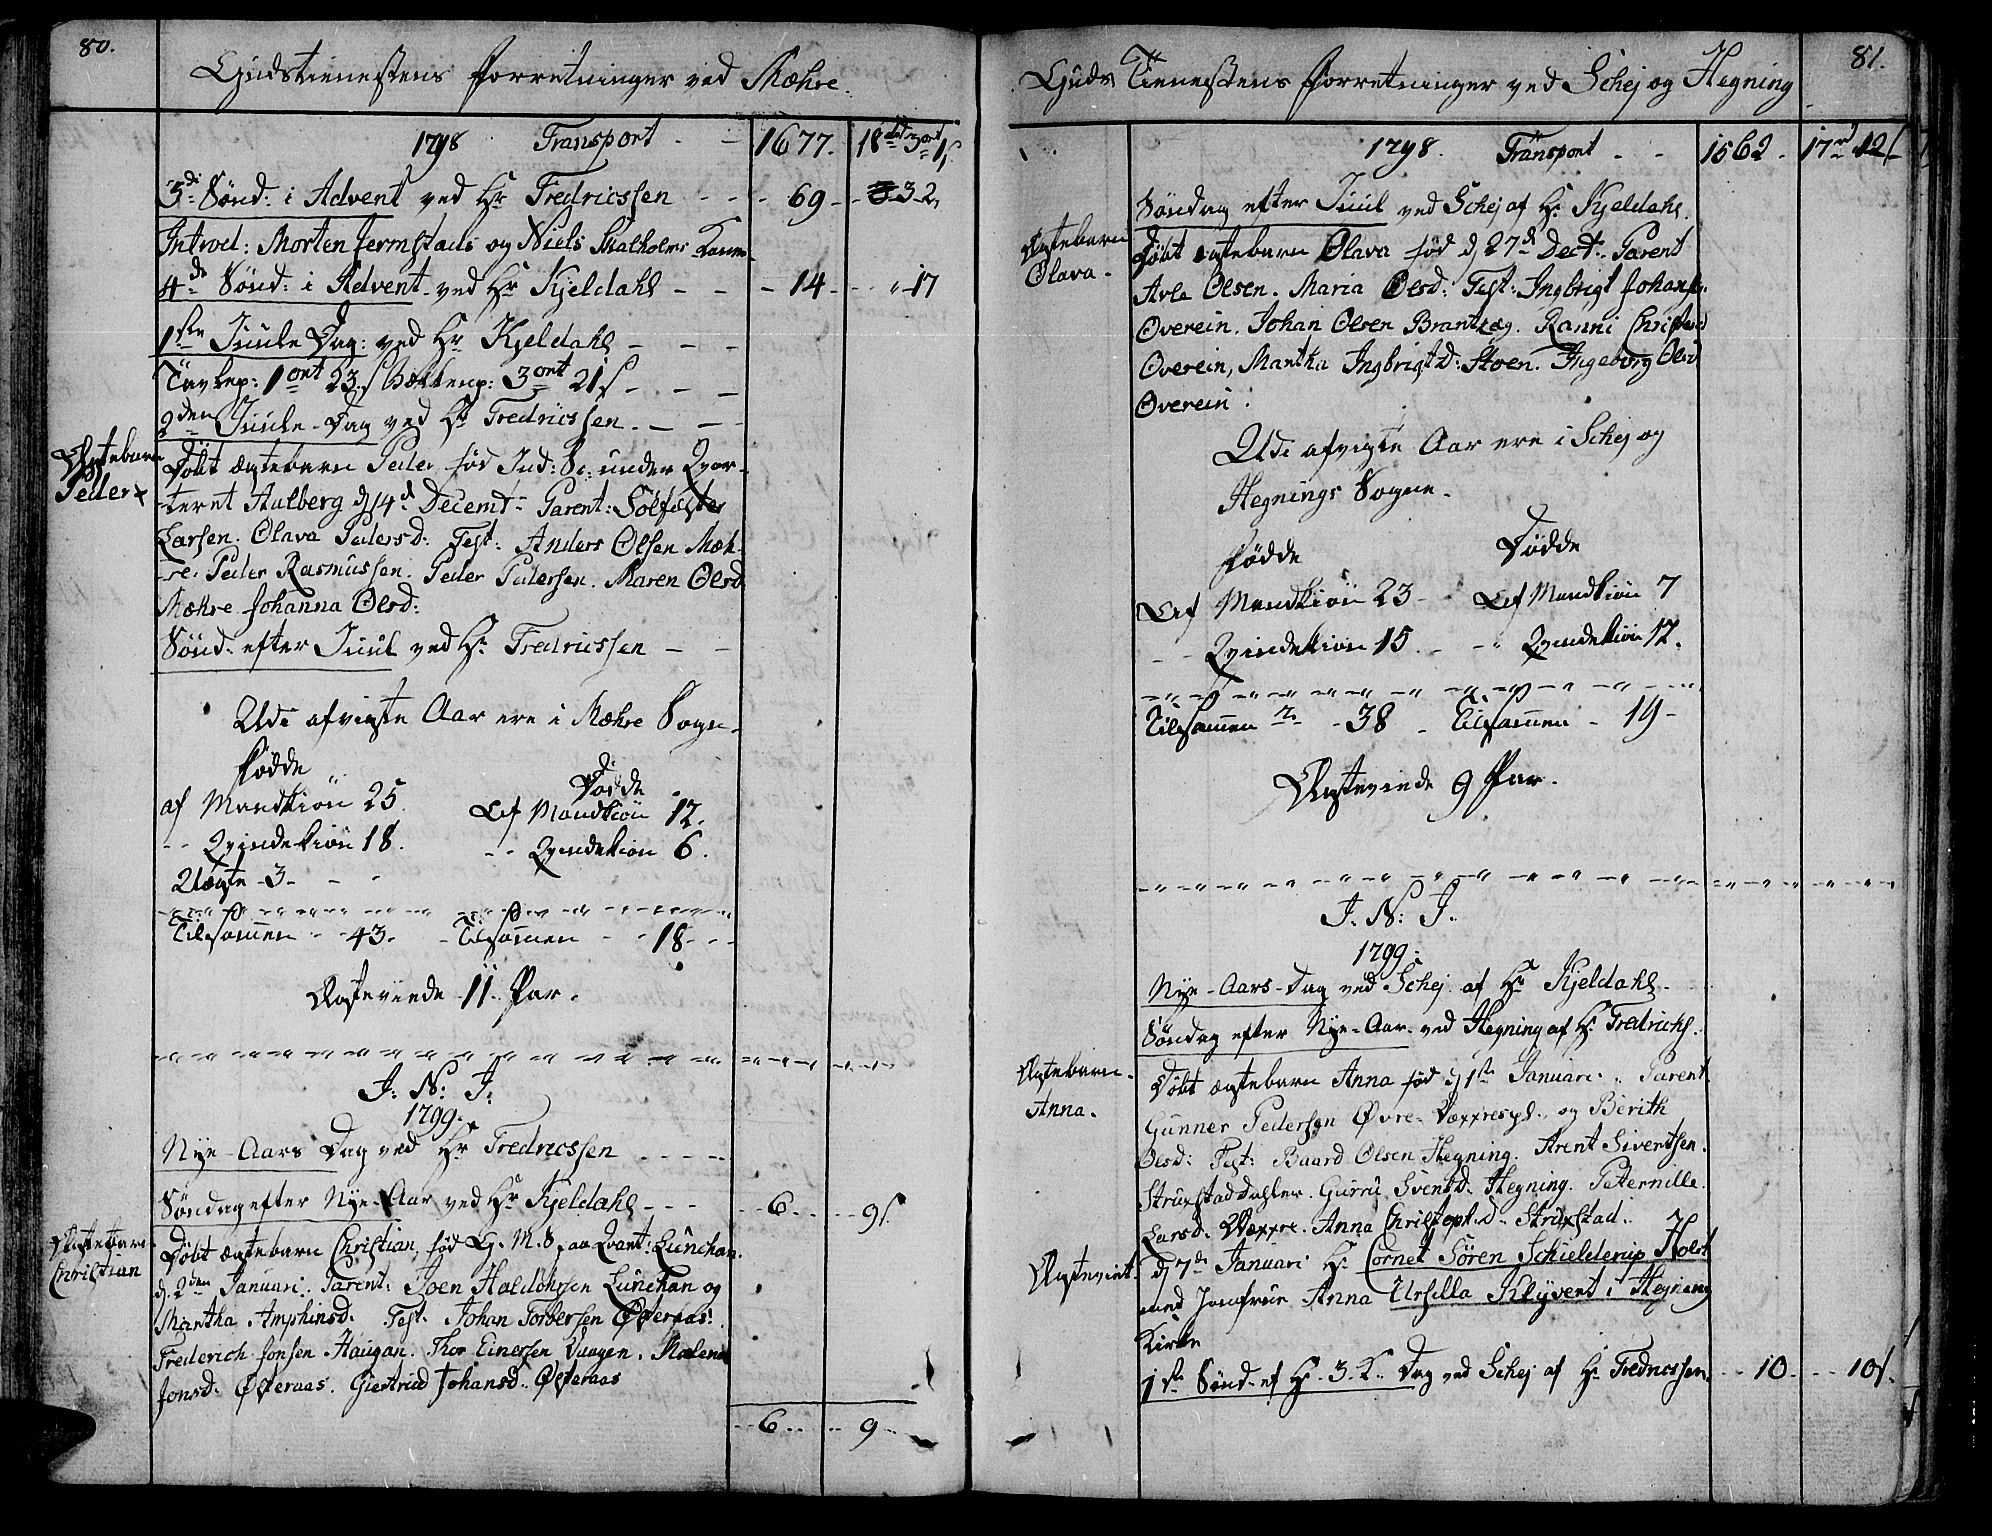 80.
Gudstienestens Forretninger ved Mæhre.
1798 Transport - - 1677. 18 3 ort 1 s
3die Sønd: i Advent ved Hr Fredricssen - - 69 - - 3 - 2,
Introd: Morten Jermstads og Niels Skalholms Koner
4de Sønd: i Advent ved Hr Kjeldahl - - - 14 - - " 17
1ste Juule Dag: ved Hr Kjeldahl - - -
Tavlep: 1 ort 23 s Bækkenp: 3 ort 21 s - - -
2den Juule-Dag ved Hr Fredricssen. - - -
Ægtebarn
Peder
Døbt ægtebarn Peder, fød Ind: S: under Qvar-
teret Aalberg d 14d Decembr Parent: Sølfæster
Larsen. Olava Pedersd: Test: Anders Olsen Mæh-
re. Peder Rasmussen. Peder Pedersen. Maren Olsd
Mæhre Johanna Olsd:
Sønd: efter Juul ved Hr Fredricssen - -
Udi afvigte Aar ere i Mæhre Sogn.
Fødde Dødde
af Mandkiön 25. Af Mandkiön 12.
- - Qvindekiön 18. - - Qvindekiön 6.
Uægte - 3 - - -
Tilsammen - - 43. - Tilsammen - - 18 - - -
Ægteviede 11. Par.
J. N. J.
1799.
Nye-Aars Dag ved Hr Fredricssen - - - - -
Søndag efter Nye-Aar ved Hr Kjeldahl - - - - 6 - - 9 s.
Ægtebarn
Christian
Døbt ægtebarn Christian, fød G. M. S paa Qvart: Lünchan.
d. 2den Januari. Parent: Joen Haldorsen Lünchan og
Martha Amphinsd. Test. Johan Torbersen Østeraas.
Frederich Jonsen Haugan. Thor Einersen Vaagen. Malena
Jonsd. Østeraas. Giertrud Johansd. Østeraas
- - 6 - - - - 9 - -
81.
Guds Tienestens Forretninger ved Schej og Hegning
1798. Transport - - 1562 - 17 rd 12 s
Søndag efter Juul ved Schej af Hr Kjeldahl.
Ægtebarn
Olava.
Døbt ægtebarn Olava fød d 27d Decbr. Parent
Arle Olsen. Maria Olsd: Test: Ingbrigt Johans.
Overein. Johan Olsen Brantzæg. Ranni Christensd
Overein, Martha Ingbrigtsd: Stoen. Ingeborg Olsd
Overein.
Udi afvigte Aar ere i Schej og
Hegnings Sogne.
Fødde Dødde
Af Mandkiön 23 - Af Mandkiön 7
- - Qvindekiön 15. - - Qvindekiön 12.
Tilsammen - - 38 - Tilsammen - 19 -
Ægteviede 9 Par.
J. N. J.
1799.
Nye-Aars-Dag ved Schej af Hr Kjeldahl -
Søndag efter Nye-Aar. ved Hegning af Hr Fredrichs.
Ægtebarn.
Anna.
Døbt ægtebarn Anna fød d 1ste Januari. Parent
Gunner Pedersen Øvre- og Berith
Olsd: Test: Baard Olsen Hegning. Arent Sivertsen.
Gurru Svensd. Hegning. Peternille
Larsd. Anna Christophd. Struxstad.
Ægteviet.
d 7de Januari Hr Cornet Søren Schielderup Holst
med Jomfrue Anna Ursilla Klyvert i Hegning
Kirke
1ste Sønd. ef H. 3. K. Dag ved Schej af Hr Fredricssen. - - 10 - - - 10 s.